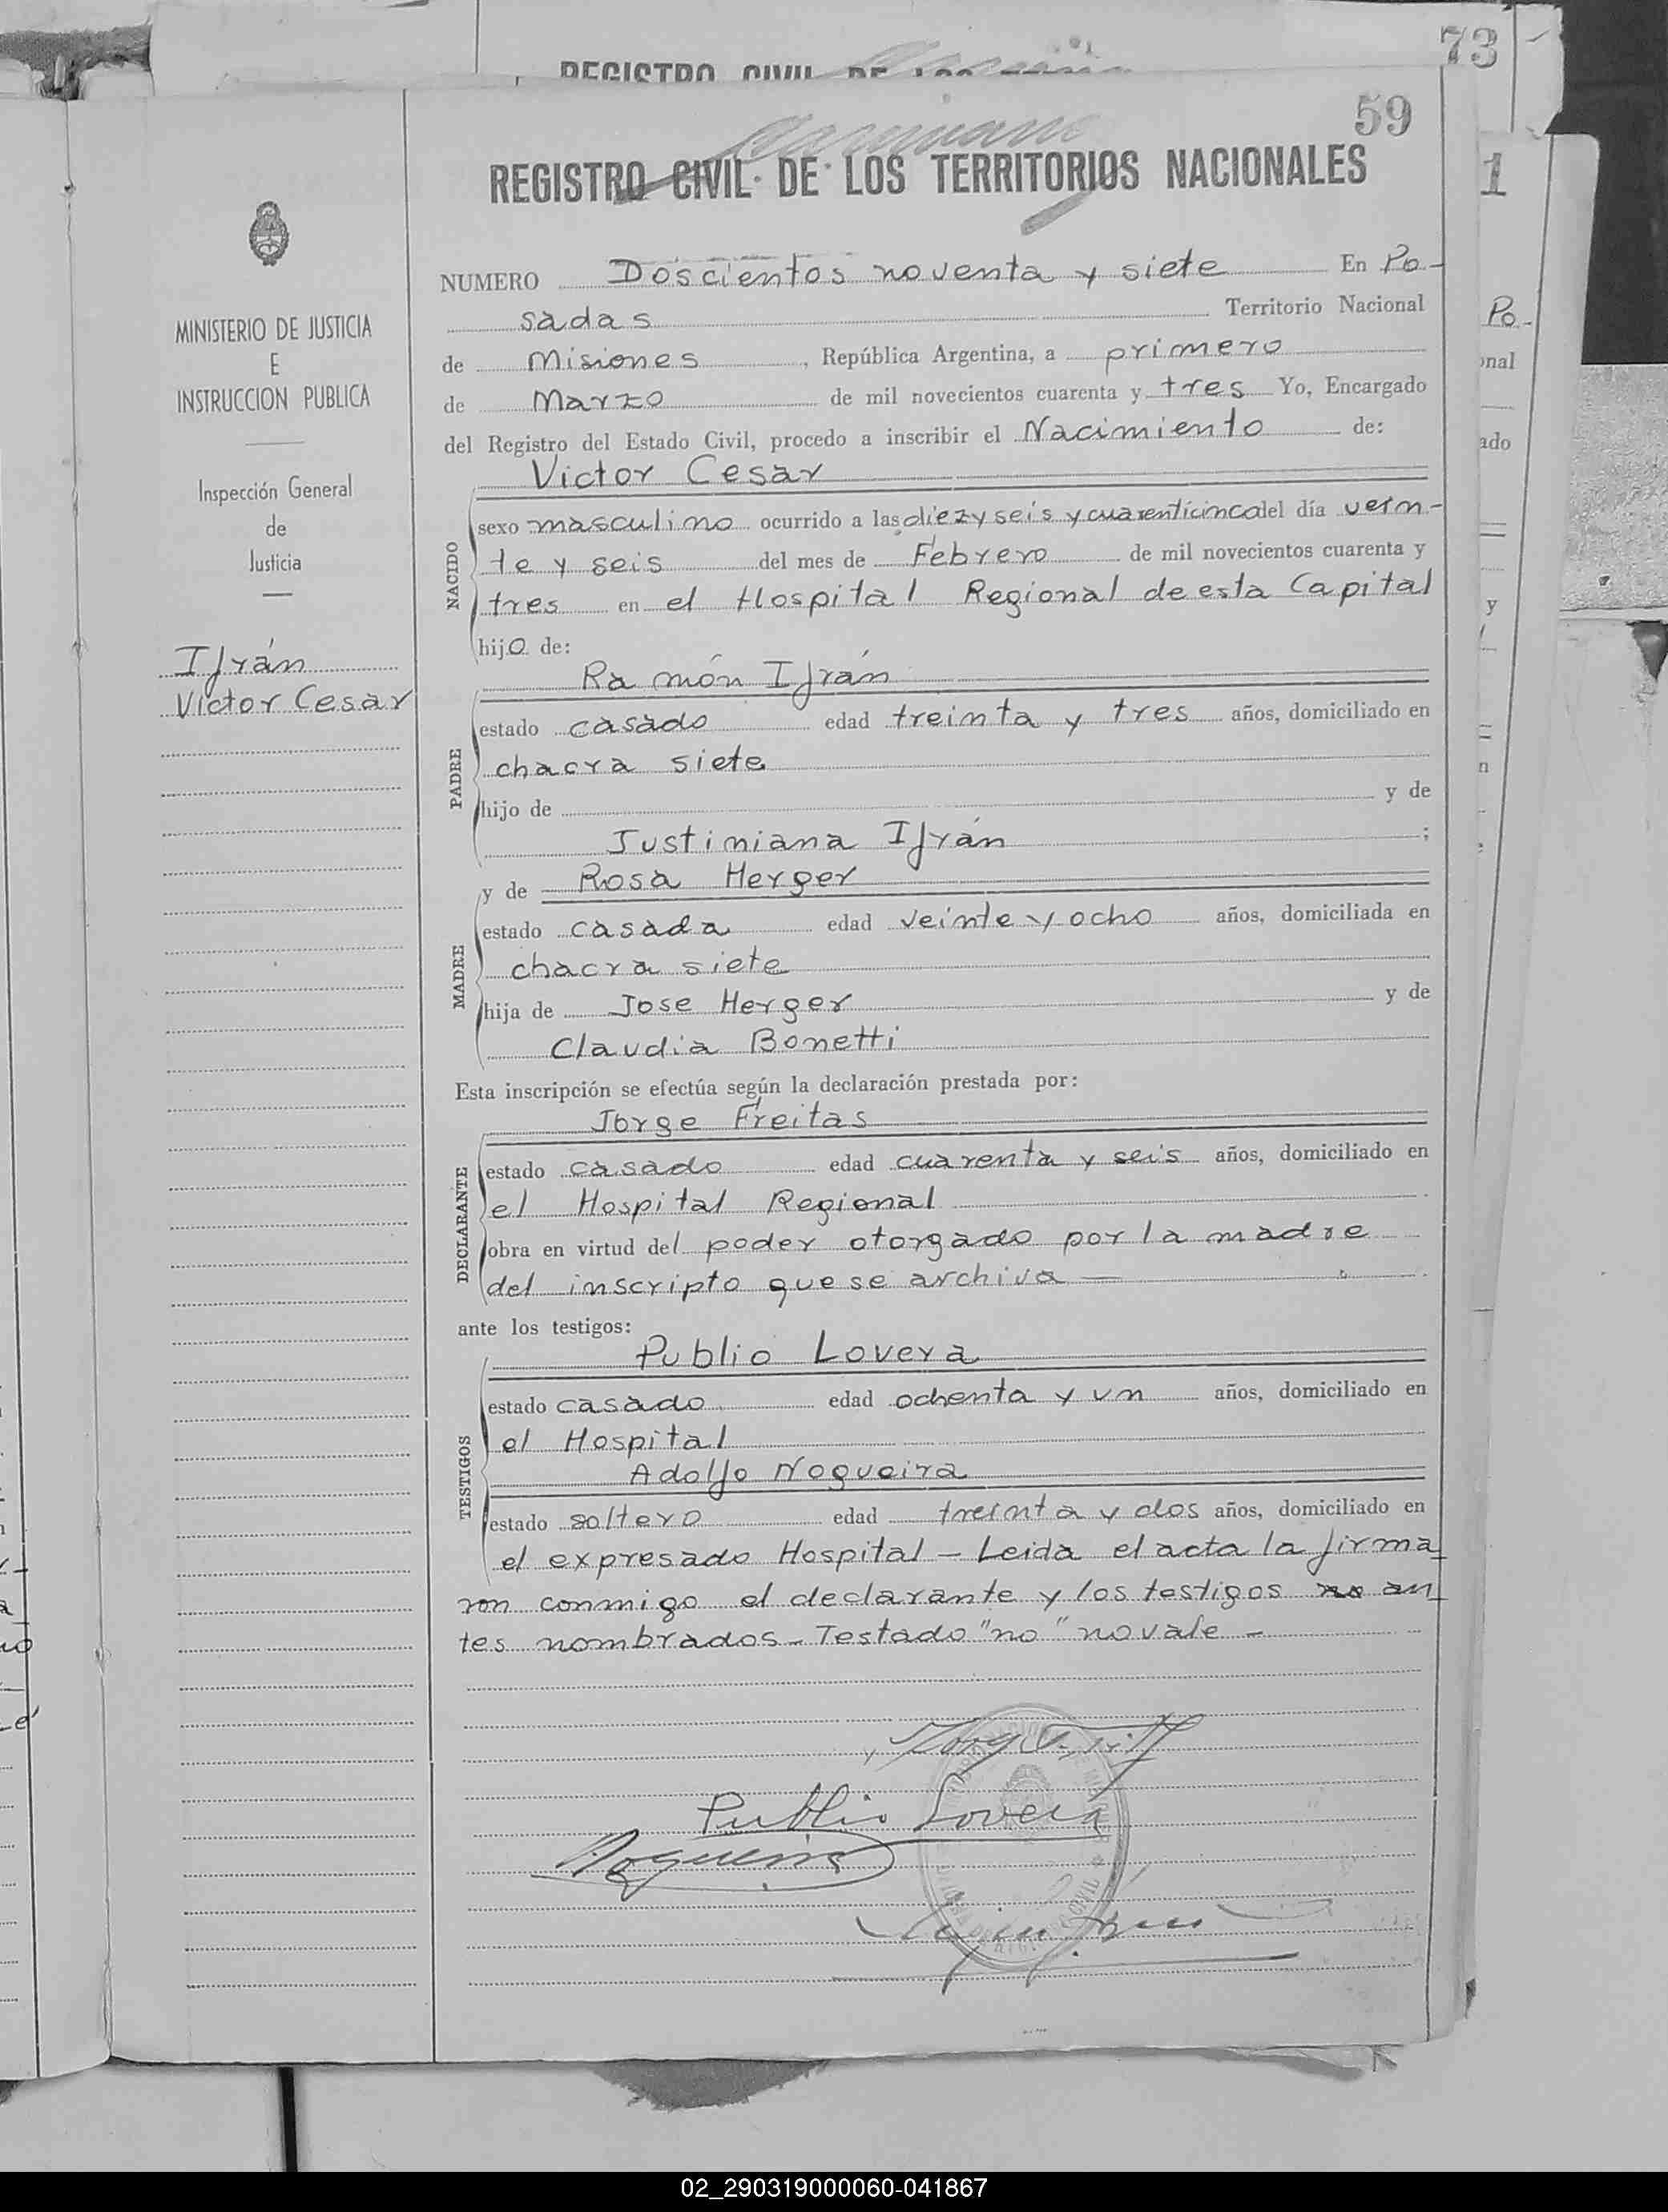 73
REGISTRO CIVIL DE LOS
59
REGISTRO CIVIL DE LOS TERRITORIOS NACIONALES
1
MINISTERIO DE JUSTICIA
E
INSTRUCCION PUBLICA
Inspección General
de
Justicia
Ifrán
Victor Cesar
NUMERO Doscientos noventa y siete En Po-
sadas Territorio Nacional
de Misiones, República Argentina, a primero
de Marzo de mil novecientos cuarenta y tres Yo, Encargado
del Registro del Estado Civil, procedo a inscribir el Nacimiento de:
Victor Cesar
NACIDO
sexo masculino ocurrido a las diez y seis y cuarenticinco del día vein-
te y seis del mes de Febrero de mil novecientos cuarenta y
tres en el Hospital Regional de esta Capital
hijo de:
Ramón Ifrán
PADRE
estado casado edad treinta y tres años, domiciliado en
chacra siete
hijo de y de
Justiniana Ifrán ;
y de Rosa Herger
MADRE
estado casada edad veinte y ocho años, domiciliada en
chacra siete
hija de Jose Herger y de
Claudia Bonetti
Esta inscripción se efectúa según la declaración prestada por:
Jorge Freitas
DECLARANTE
estado casado edad cuarenta y seis años, domiciliado en
el Hospital Regional
obra en virtud del poder otorgado por la madre
del inscripto que se archiva —
ante los testigos:
Publio Lovera
TESTIGOS
estado casado edad ochenta y un años, domiciliado en
el Hospital
Adolfo Nogueira
estado soltero edad treinta y dos años, domiciliado en
el expresado Hospital — Leida el acta la firma
ron conmigo el declarante y los testigos no an
tes nombrados - Testado "no" no vale -
Publio Lovera
Nogueira
Po-
onal
ado
y
n
02_290319000060-041867